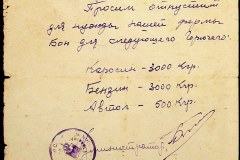 Просим отпустить
для нужды нашей фермы
бон для следующего Горючего:
Керосин - 3000 Кгр.
Бензин - 3000 Кгр.
Автол - 500 Кгр.